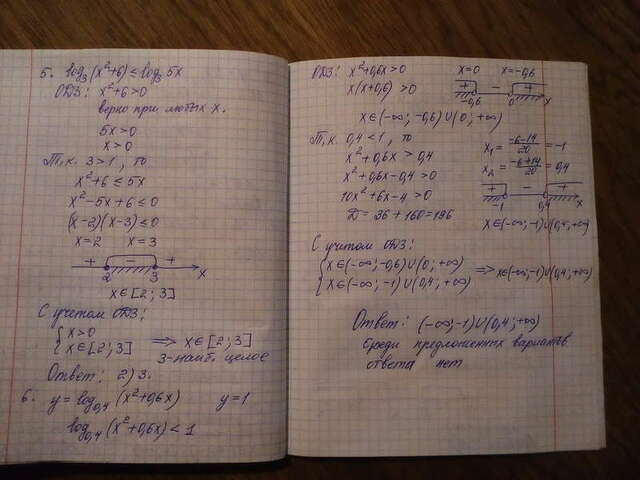 5. log₃(x²+6) ≤ log₃ 5x
ОДЗ: x²+6>0
верно при любых x.
5x>0
x>0
Т.к. 3>1, то
x²+6 ≤ 5x
x²-5x+6 ≤ 0
(x-2)(x-3) ≤ 0
x=2 x=3
+ - +
2 3 x
x∈[2;3]
С учетом ОДЗ:
{ x>0
{ x∈[2;3] ⟹ x∈[2;3]
3-наиб. целое
Ответ: 2) 3.
6. y=log₀,₄(x²+0,6x) y=1
log₀,₄(x²+0,6x)<1
ОДЗ: x²+0,6x>0 x=0 x=-0,6
x(x+0,6)>0 + - +
-0,6 0 x
x∈(-∞;-0,6)∪(0;+∞)
Т.к. 0,4<1, то x₁ = (-6-14)/20 = -1
x²+0,6x>0,4
x²+0,6x-0,4>0 x₂ = (-6+14)/20 = 0,4
10x²+6x-4>0 + - +
-1 0,4 x
D=36+160=196 x∈(-∞;-1)∪(0,4;+∞)
С учетом ОДЗ:
{ x∈(-∞;-0,6)∪(0;+∞)
{ x∈(-∞;-1)∪(0,4;+∞) ⟹ x∈(-∞;-1)∪(0,4;+∞)
Ответ: (-∞;-1)∪(0,4;+∞)
Среди предложенных вариантов
ответа нет